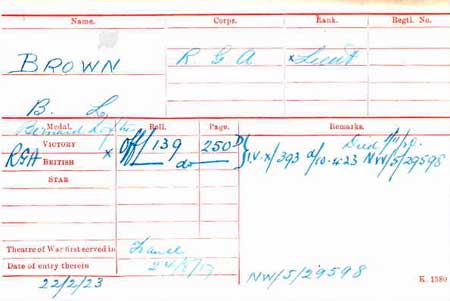 Name. Corps. Rank. Regtl. No.
BROWN R G A x Lieut
B. L.
Bernard
Medal. Roll. Page. Remarks.
VICTORY Off/139 250D Died
RGA x BRITISH do I.V.X/393 d/10.4.23 NW/5/29598
STAR
Theatre of War first served in France
Date of entry therein
22/2/23 NW/5/29598 K. 1380